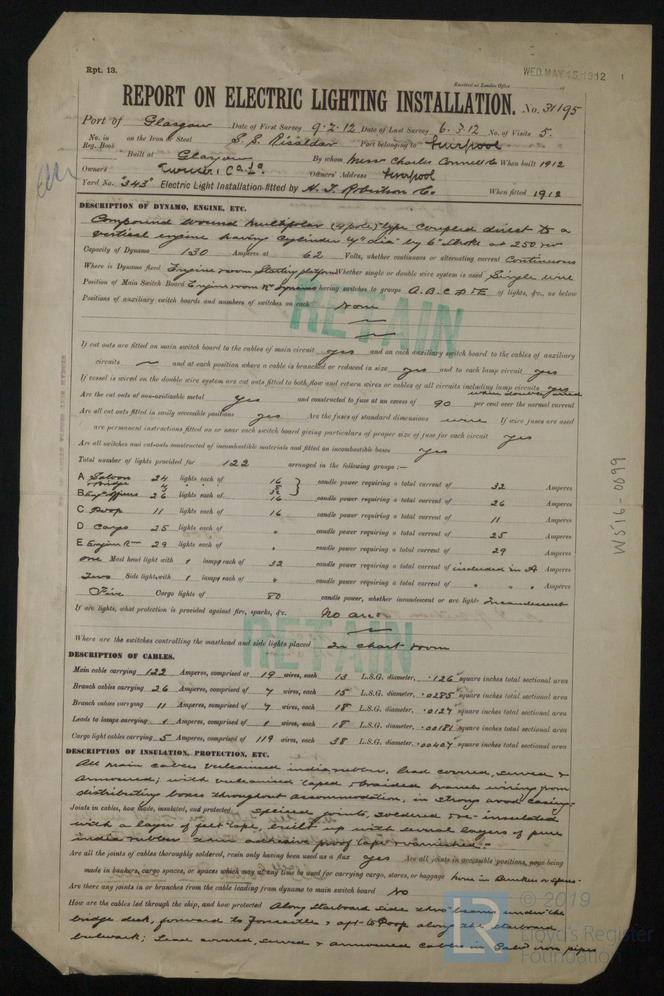 Rpt. 13.
WED. MAY 15 1912
Received at London Office
REPORT ON ELECTRIC LIGHTING INSTALLATION. No. 31195
Port of Glasgow Date of First Survey 9.2.12 Date of Last Survey 6.3.12 No. of Visits 5.
No. in Reg. Book on the Iron or Steel S.S. Risaldar Port belonging to Liverpool
Built at Glasgow By whom Mess Charles Connell & Co When built 1912
Owners Owners' Address Liverpool
Yard No. "343" Electric Light Installation fitted by H. T. Robertson Co. When fitted 1912
DESCRIPTION OF DYNAMO, ENGINE, ETC.
Compound wound multipolar (4 pole) type coupled direct to a
vertical engine having cylinder 4" dia by 6" stroke at 250 rev
Capacity of Dynamo 130 Amperes at 62 Volts, whether continuous or alternating current Continuous
Where is Dynamo fixed Engine room Starting platform Whether single or double wire system is used Single wire
Position of Main Switch Board Engine room Nr Dynamo having switches to groups A.B.C.D.&E of lights, &c., as below
Positions of auxiliary switch boards and numbers of switches on each None
RETAIN
If cut outs are fitted on main switch board to the cables of main circuit yes and on each auxiliary switch board to the cables of auxiliary
circuits — and at each position where a cable is branched or reduced in size yes and to each lamp circuit yes
If vessel is wired on the double wire system are cut outs fitted to both flow and return wires or cables of all circuits including lamp circuits yes when double wired
Are the cut outs of non-oxidizable metal yes and constructed to fuse at an excess of 90 per cent over the normal current
Are all cut outs fitted in easily accessible positions yes Are the fuses of standard dimensions wire If wire fuses are used
are permanent instructions fitted on or near each switch board giving particulars of proper size of fuse for each circuit yes
Are all switches and cut-outs constructed of incombustible materials and fitted on incombustible bases yes
Total number of lights provided for 122 arranged in the following groups :—
A Saloon 24 lights each of 16 candle power requiring a total current of 32 Amperes
Bridge 4 " 32
B Eng Officers 26 lights each of 16 candle power requiring a total current of 26 Amperes
C Poop 11 lights each of 16 candle power requiring a total current of 11 Amperes
D Cargo 25 lights each of " candle power requiring a total current of 25 Amperes
E Engine Rm 29 lights each of " candle power requiring a total current of 29 Amperes
One Mast head light with 1 lamps each of 32 candle power requiring a total current of included in A Amperes
Two Side light with 1 lamps each of " candle power requiring a total current of " " " Amperes
Five Cargo lights of 80 candle power, whether incandescent or arc lights Incandescent
If arc lights, what protection is provided against fire, sparks, &c. No arcs
RETAIN
Where are the switches controlling the masthead and side lights placed In chart room
DESCRIPTION OF CABLES.
Main cable carrying 122 Amperes, comprised of 19 wires, each 13 L.S.G. diameter, .126 square inches total sectional area
Branch cables carrying 26 Amperes, comprised of 7 wires, each 15 L.S.G. diameter, .0285 square inches total sectional area
Branch cables carrying 11 Amperes, comprised of 7 wires, each 18 L.S.G. diameter, .0127 square inches total sectional area
Leads to lamps carrying 1 Amperes, comprised of 1 wires, each 18 L.S.G. diameter, .00181 square inches total sectional area
Cargo light cables carrying 5 Amperes, comprised of 119 wires, each 38 L.S.G. diameter, .00407 square inches total sectional area
DESCRIPTION OF INSULATION, PROTECTION, ETC.
All main cables vulcanised indiarubber, lead covered, served &
armoured; with vulcanised taped & braided branch wiring from
distributing boxes throughout accommodation, in strong wood casing.
Joints in cables, how made, insulated, and protected Spliced joints, soldered & re-insulated
with a layer of felt tape, built up with several layers of pure
india rubber then adhesive proof tape & varnished.
Are all the joints of cables thoroughly soldered, resin only having been used as a flux yes Are all joints in accessible positions, none being
made in bunkers, cargo spaces, or spaces which may at any time be used for carrying cargo, stores, or baggage None in Bunkers or spaces
Are there any joints in or branches from the cable leading from dynamo to main switch board No
How are the cables led through the ship, and how protected Along starboard side thro' beams under the
bridge deck, forward to Forecastle & aft to Poop along the starboard
bulwark; Lead covered, served & armoured cables in Galvd iron pipes
WS16-0099
© 2019
LR
Lloyd's Register
Foundation